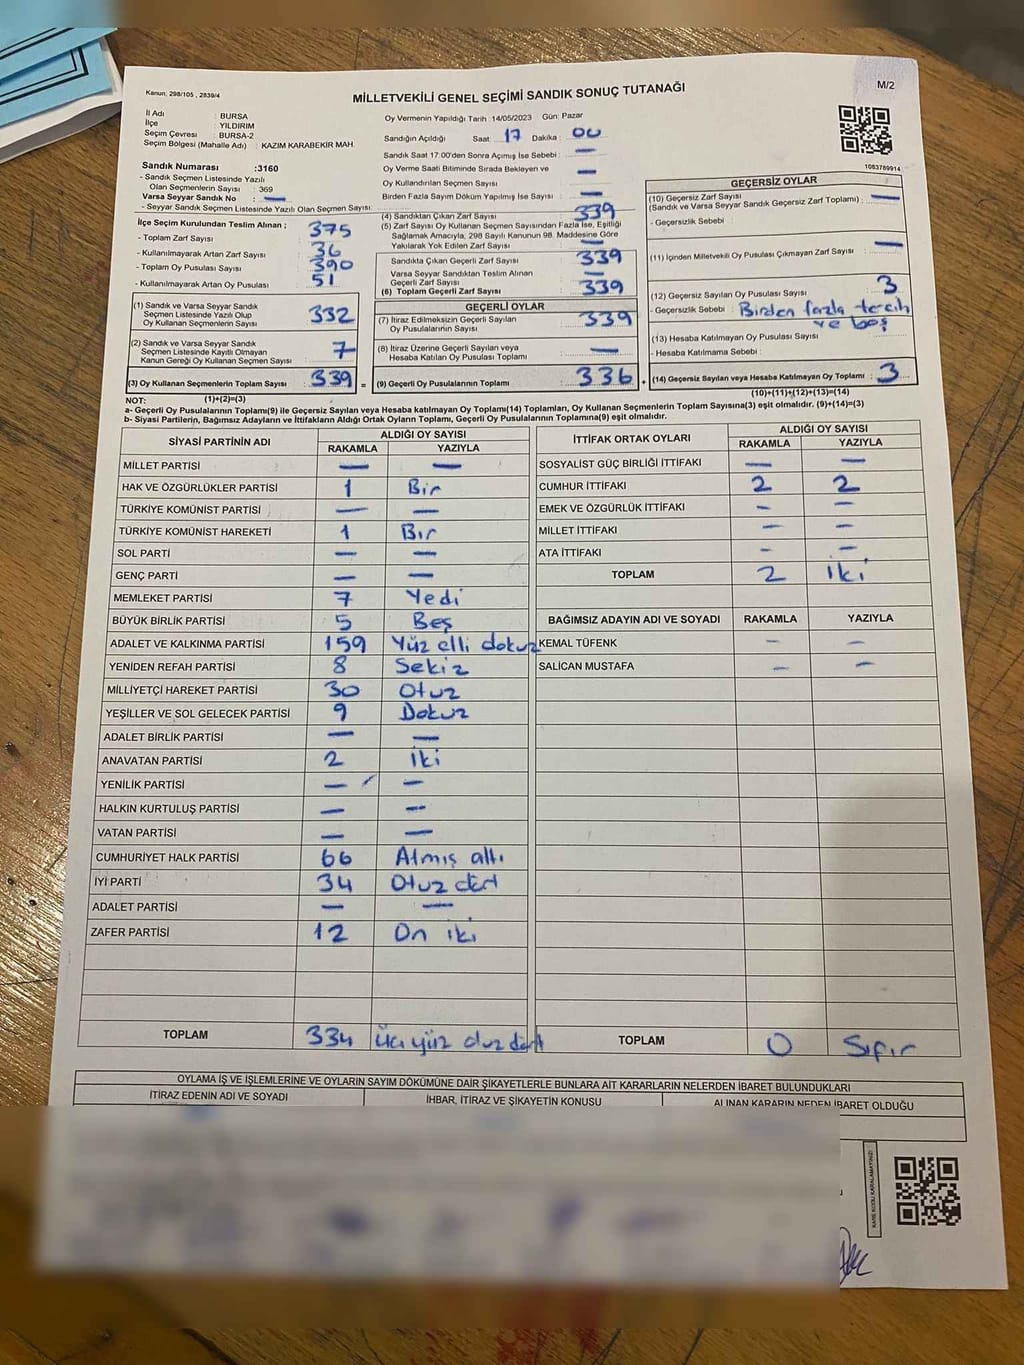 Kanun, 298/105 , 2839/4
MİLLETVEKİLİ GENEL SEÇİMİ SANDIK SONUÇ TUTANAĞI
M/2
İl Adı : BURSA
İlçe : YILDIRIM
Seçim Çevresi : BURSA-2
Seçim Bölgesi (Mahalle Adı) : KAZIM KARABEKİR MAH.
Oy Vermenin Yapıldığı Tarih :14/05/2023 Gün: Pazar
Sandığın Açıldığı Saat: 17 Dakika: 00
Sandık Saat 17:00'den Sonra Açmış İse Sebebi : —
Oy Verme Saati Bitiminde Sırada Bekleyen ve
Oy Kullandırılan Seçmen Sayısı : —
Birden Fazla Sayım Döküm Yapılmış İse Sayısı : —
1083789914
Sandık Numarası :3160
- Sandık Seçmen Listesinde Yazılı
Olan Seçmenlerin Sayısı : 369
Varsa Seyyar Sandık No : —
- Seyyar Sandık Seçmen Listesinde Yazılı Olan Seçmen Sayısı:
İlçe Seçim Kurulundan Teslim Alınan ;
- Toplam Zarf Sayısı : 375
- Kullanılmayarak Artan Zarf Sayısı : 36
- Toplam Oy Pusulası Sayısı : 390
- Kullanılmayarak Artan Oy Pusulası : 51
(1) Sandık ve Varsa Seyyar Sandık
Seçmen Listesinde Yazılı Olup
Oy Kullanan Seçmenlerin Sayısı : 332
(2) Sandık ve Varsa Seyyar Sandık
Seçmen Listesinde Kayıtlı Olmayan
Kanun Gereği Oy Kullanan Seçmen Sayısı : 7
(3) Oy Kullanan Seçmenlerin Toplam Sayısı : 339 =
(4) Sandıktan Çıkan Zarf Sayısı : 339
(5) Zarf Sayısı Oy Kullanan Seçmen Sayısından Fazla İse, Eşitliği
Sağlamak Amacıyla, 298 Sayılı Kanunun 98. Maddesine Göre
Yakılarak Yok Edilen Zarf Sayısı : —
Sandıkta Çıkan Geçerli Zarf Sayısı : 339
Varsa Seyyar Sandıktan Teslim Alınan
Geçerli Zarf Sayısı : —
(6) Toplam Geçerli Zarf Sayısı : 339
GEÇERLİ OYLAR
(7) İtiraz Edilmeksizin Geçerli Sayılan
Oy Pusulalarının Sayısı : 339
(8) İtiraz Üzerine Geçerli Sayılan veya
Hesaba Katılan Oy Pusulası Toplamı : —
(9) Geçerli Oy Pusulalarının Toplamı : 336 +
GEÇERSİZ OYLAR
(10) Geçersiz Zarf Sayısı
(Sandık ve Varsa Seyyar Sandık Geçersiz Zarf Toplamı) : —
- Geçersizlik Sebebi :
(11) İçinden Milletvekili Oy Pusulası Çıkmayan Zarf Sayısı : —
(12) Geçersiz Sayılan Oy Pusulası Sayısı : 3
- Geçersizlik Sebebi : Birden fazla tercih
ve boş
(13) Hesaba Katılmayan Oy Pusulası Sayısı :
- Hesaba Katılmama Sebebi :
(14) Geçersiz Sayılan veya Hesaba Katılmayan Oy Toplamı : 3
NOT: (1)+(2)=(3)
(10)+(11)+(12)+(13)=(14)
a- Geçerli Oy Pusulalarının Toplamı(9) ile Geçersiz Sayılan veya Hesaba Katılmayan Oy Toplamı(14) Toplamları, Oy Kullanan Seçmenlerin Toplam Sayısına(3) eşit olmalıdır. (9)+(14)=(3)
b- Siyasi Partilerin, Bağımsız Adayların ve İttifakların Aldığı Ortak Oyların Toplamı, Geçerli Oy Pusulalarının Toplamına(9) eşit olmalıdır.
SİYASİ PARTİNİN ADI ALDIĞI OY SAYISI
RAKAMLA YAZIYLA
MİLLET PARTİSİ — —
HAK VE ÖZGÜRLÜKLER PARTİSİ 1 Bir
TÜRKİYE KOMÜNİST PARTİSİ — —
TÜRKİYE KOMÜNİST HAREKETİ 1 Bir
SOL PARTİ — —
GENÇ PARTİ — —
MEMLEKET PARTİSİ 7 Yedi
BÜYÜK BİRLİK PARTİSİ 5 Beş
ADALET VE KALKINMA PARTİSİ 159 Yüz elli dokuz
YENİDEN REFAH PARTİSİ 8 Sekiz
MİLLİYETÇİ HAREKET PARTİSİ 30 Otuz
YEŞİLLER VE SOL GELECEK PARTİSİ 9 Dokuz
ADALET BİRLİK PARTİSİ — —
ANAVATAN PARTİSİ 2 İki
YENİLİK PARTİSİ — —
HALKIN KURTULUŞ PARTİSİ — —
VATAN PARTİSİ — —
CUMHURİYET HALK PARTİSİ 66 Atmış altı
İYİ PARTİ 34 Otuz dört
ADALET PARTİSİ — —
ZAFER PARTİSİ 12 On iki
TOPLAM 334 üçyüz otuz dört
İTTİFAK ORTAK OYLARI ALDIĞI OY SAYISI
RAKAMLA YAZIYLA
SOSYALİST GÜÇ BİRLİĞİ İTTİFAKI — —
CUMHUR İTTİFAKI 2 2
EMEK VE ÖZGÜRLÜK İTTİFAKI — —
MİLLET İTTİFAKI — —
ATA İTTİFAKI — —
TOPLAM 2 İki
BAĞIMSIZ ADAYIN ADI VE SOYADI RAKAMLA YAZIYLA
KEMAL TÜFENK — —
SALİCAN MUSTAFA — —
TOPLAM 0 Sıfır
OYLAMA İŞ VE İŞLEMLERİNE VE OYLARIN SAYIM DÖKÜMÜNE DAİR ŞİKAYETLERLE BUNLARA AİT KARARLARIN NELERDEN İBARET BULUNDUKLARI
İTİRAZ EDENİN ADI VE SOYADI İHBAR, İTİRAZ VE ŞİKAYETİN KONUSU ALINAN KARARIN NEDEN İBARET OLDUĞU
KARE KODU KARALAMAYINIZ!